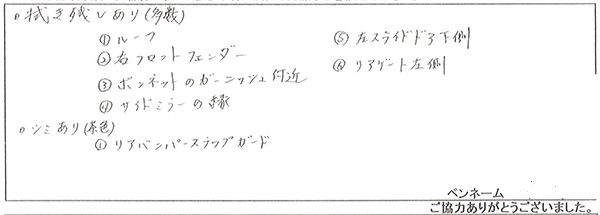 ○拭き残しあり(多数)
① ルーフ
② 右フロントフェンダー
③ ボンネットのガーニッシュ付近
④ サイドミラーの縁
⑤ 左スライドドア下側
⑥ リアゲート左側
○シミあり(茶色)
① リアバンパーステップガード
ペンネーム
ご協力ありがとうございました。